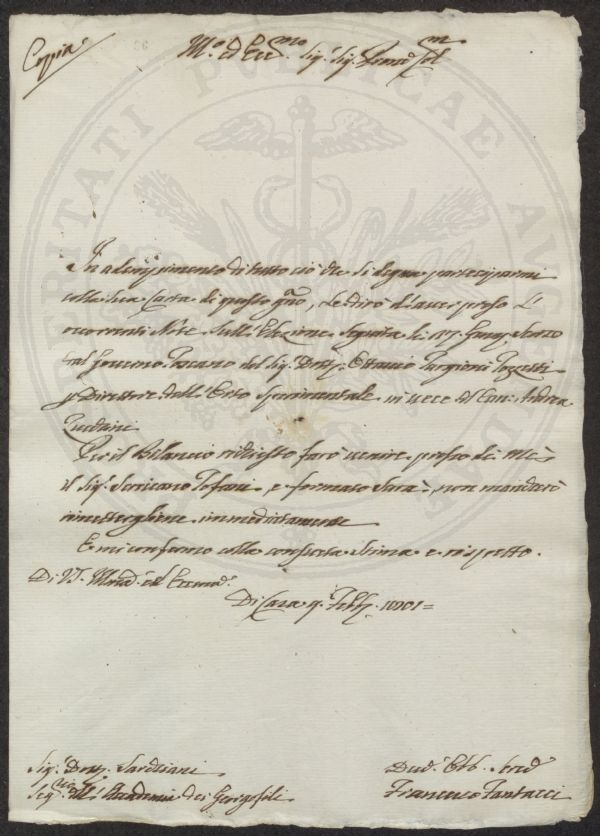 Copia
M.º ed Ecc.mo Sig.r Sig.r Col.mo
In adempimento di tutto ciò che si degna parteciparmi
colla sua Carta di questo gno, Le dirò d'aver preso l'
occorrenti Note sull'Elezione seguita li
dal Governo Toscano del Sig.r Dott. Ottavio Targioni Tozzetti
p Direttore dell'Orto Sperimentale in vece del Can. Andrea
Zucchini
Per il Bilancio richiesto farò venire presso di Me
il Sig.r Scrivano Tofani, e formato sarà, non manderò
immediatamente
E mi confermo colla consueta stima e rispetto.
Di V.S. ed Eccma.
Di Casa Febb.
Sig.r Dott. Sarchiani
Seg. Accademia dei Georgofili
Dev. Obb. Serv.
Francesco Fantacci
PROSPERITATI PUBLICAE AUGENDAE